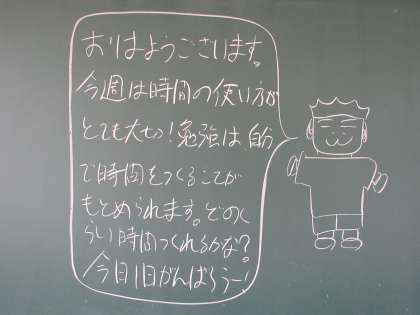 おはようございます。
今週は時間の使い方が
とても大切！勉強は、自分
で時間をつくることが
もとめられます。どのく
らい時間つくれるかな？
今日1日がんばろうー！